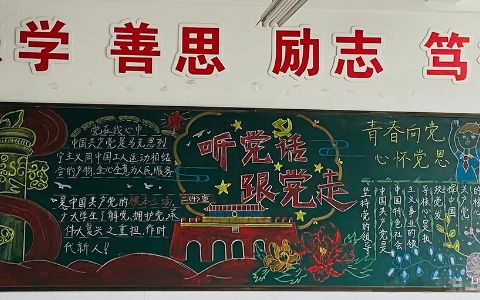 学 善思 励志 笃
党在我心中
中国共产党是马克思列
宁主义同中国工人运动相结
合的产物,全心全意为人民服务
是中国共产党的根本立场,
广大学生了解党,拥护党,承
伟大复兴之重担,作时
代新人!
听党话
跟党走
青春向党
心怀党恩
坚持党的领导
中国共产党是
中国特色社会
主义事业的领
导核心,是执